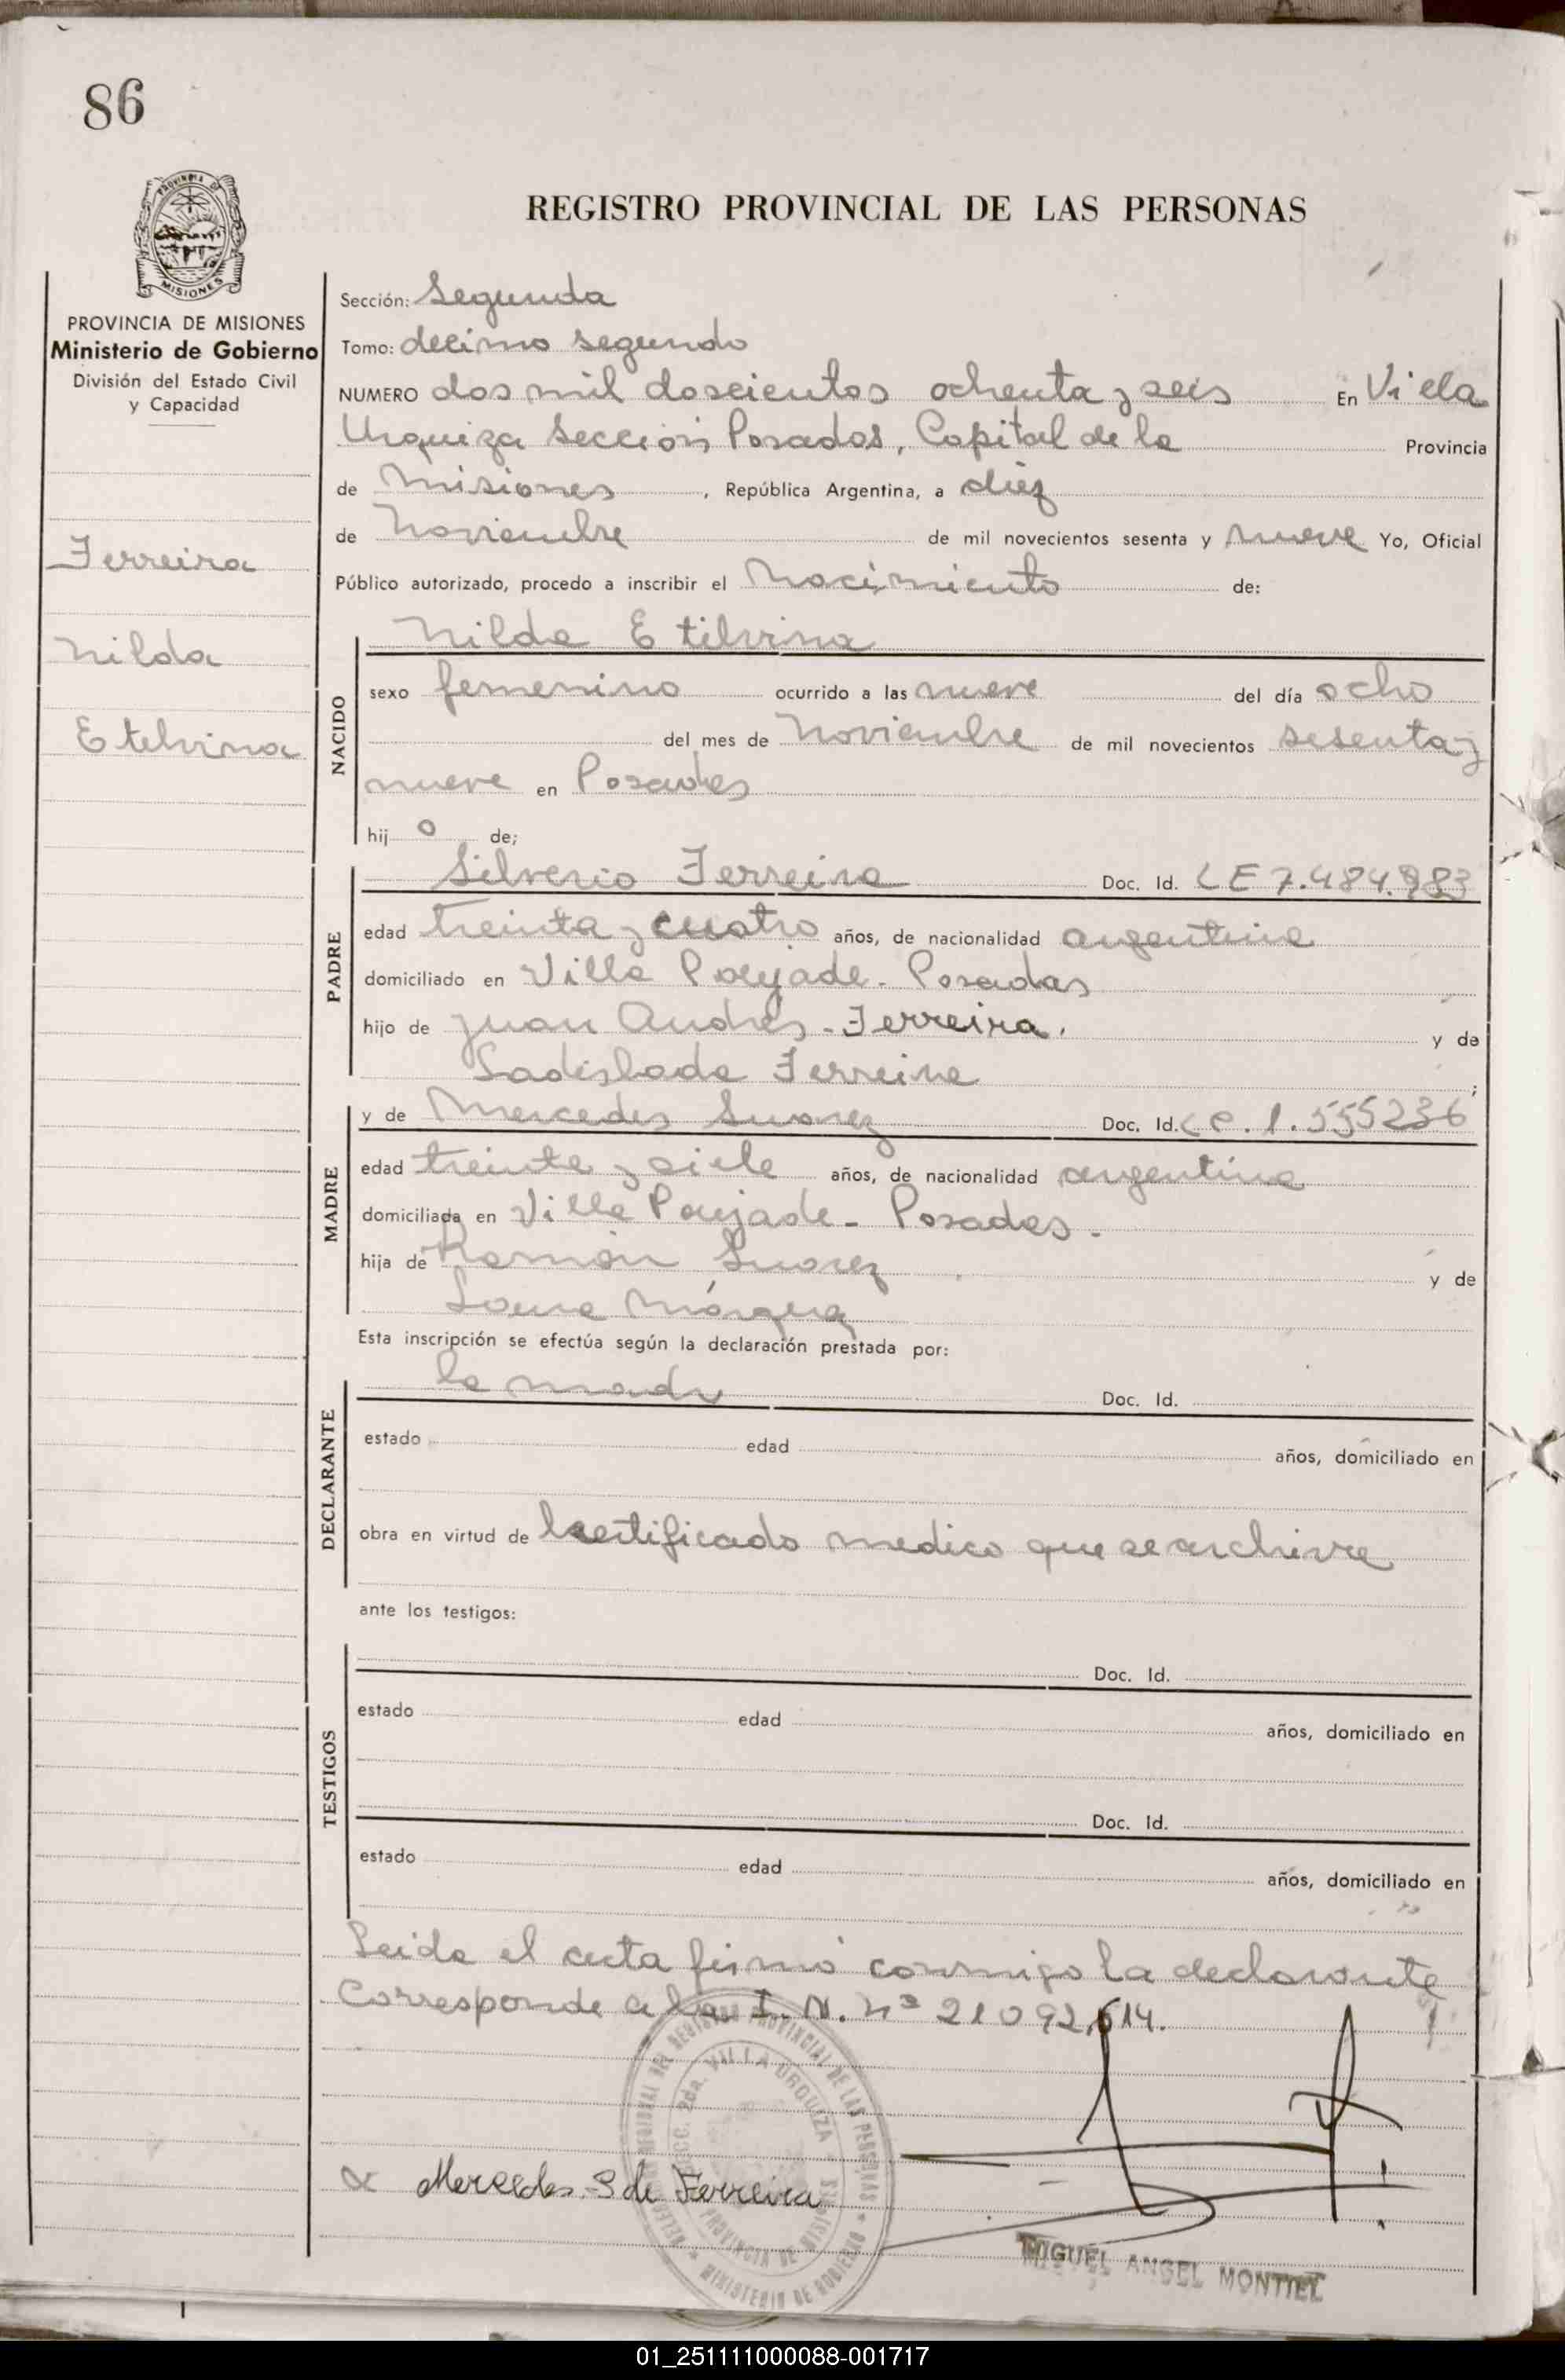 86
PROVINCIA DE MISIONES
REGISTRO PROVINCIAL DE LAS PERSONAS
PROVINCIA DE MISIONES
Ministerio de Gobierno
División del Estado Civil
y Capacidad
Ferreira
Nilda
Etelvina
Sección: Segunda
Tomo: decimo segundo
NUMERO dos mil doscientos ochenta y seis En Villa
Urquiza Sección Posadas, Capital de la Provincia
de Misiones, República Argentina, a diez
de Noviembre de mil novecientos sesenta y nueve Yo, Oficial
Público autorizado, procedo a inscribir el Nacimiento de:
NACIDO
Nilda Etilvina
sexo femenino ocurrido a las nueve del día ocho
del mes de Noviembre de mil novecientos sesenta y
nueve en Posadas
hij o de;
PADRE
Silverio Ferreira Doc. Id. LE 7.484.983
edad treinta y cuatro años, de nacionalidad argentina
domiciliado en Villa Poujade - Posadas
hijo de Juan Andrés - Ferreira. y de
Ladislada Ferreira ;
MADRE
y de Mercedes Suarez Doc. Id. LC. 1.555236
edad treinta y siete años, de nacionalidad argentina
domiciliada en Villa Poujade - Posadas -
hija de Ramón Suarez y de
Márquez
Esta inscripción se efectúa según la declaración prestada por:
DECLARANTE
la madre Doc. Id.
estado edad años, domiciliado en
obra en virtud de certificado medico que se archiva
ante los testigos:
TESTIGOS
Doc. Id.
estado edad años, domiciliado en
Doc. Id.
estado edad años, domiciliado en
Leida el acta firmó conmigo la declarante
Corresponde a la I. N. nº 21092.614.
REGIONAL DEL REGISTRO PROVINCIAL DE LAS PERSONAS
SECC. 2da. VILLA URQUIZA
PROVINCIA DE MISIONES
MINISTERIO DE GOBIERNO
Mercedes S de Ferreira
MIGUEL ANGEL MONTIEL
01_251111000088-001717